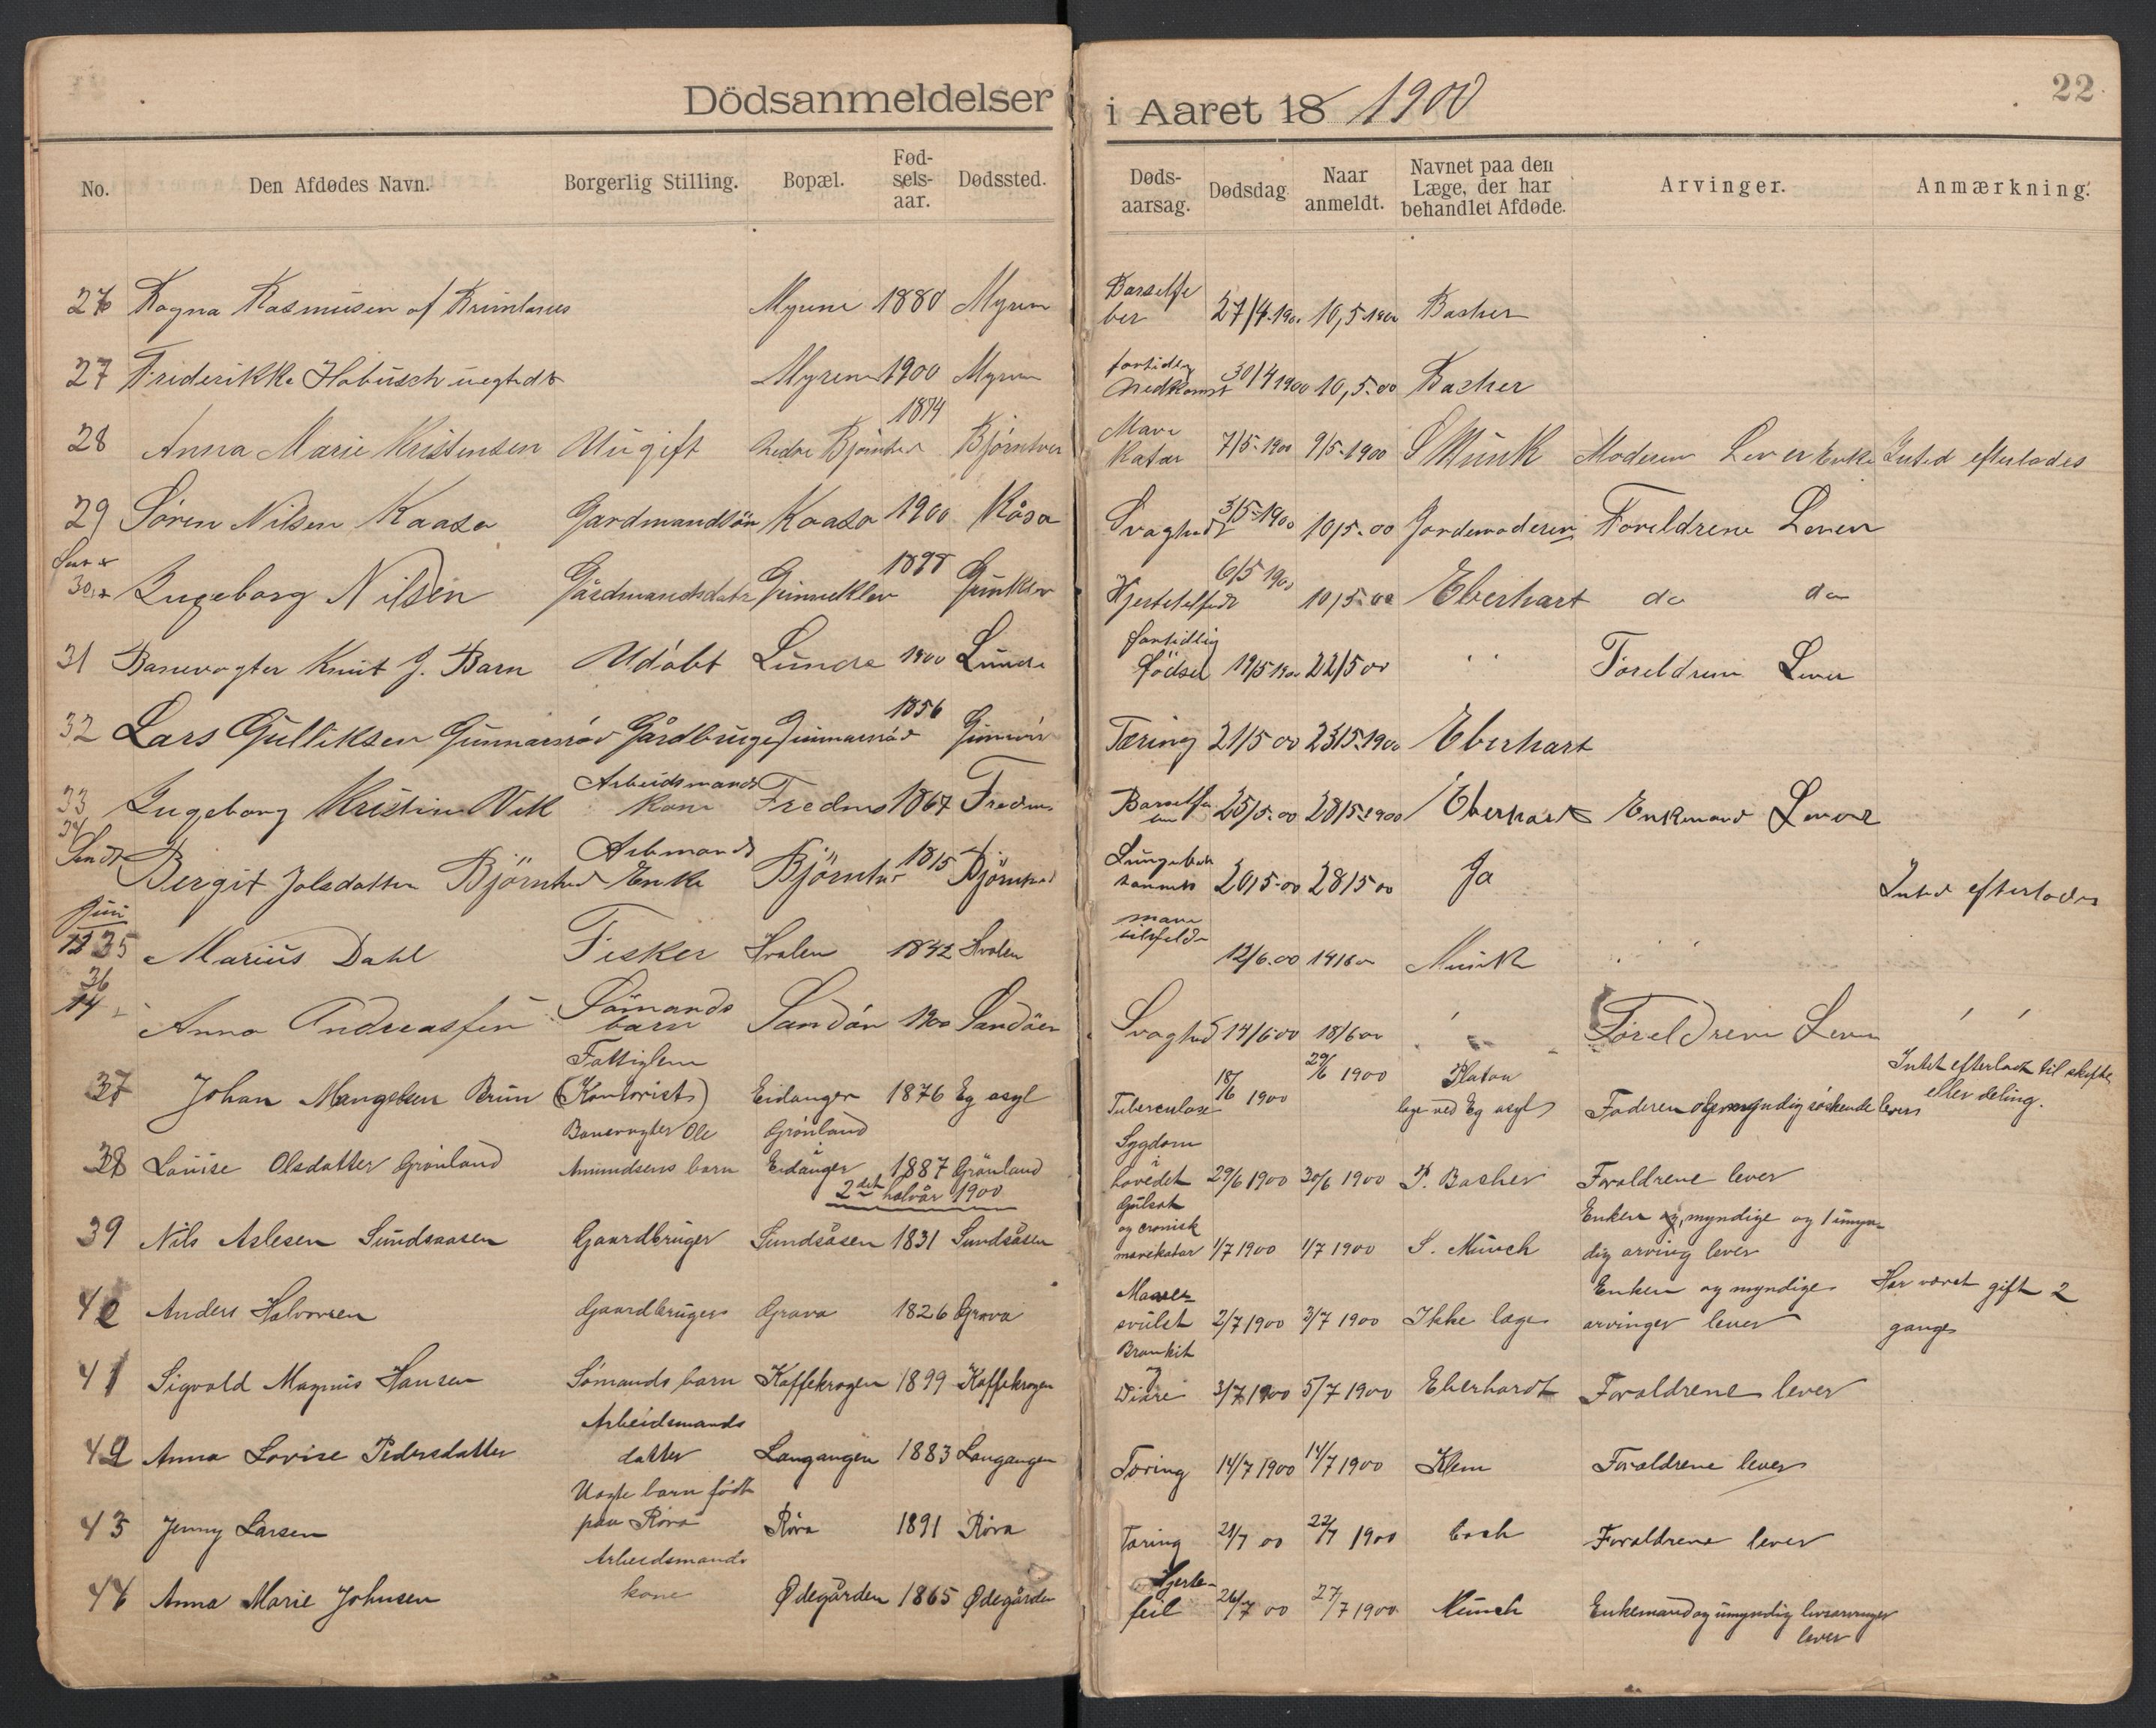 Dödsanmeldelser i Aaret 18 1900
22
No. Den Afdødes Navn. Borgerlig Stilling. Bopæl. Fød-sels-aar. Dødssted. Døds-aarsag. Dødsdag Naar anmeldt. Navnet paa den Læge, der har behandlet Afdøde. Arvinger. Anmærkning.
26 Ragna Rasmusen af Myrene 1880 Myren Barselfeber 27/4 1900 10/5 1900 Bacher
27 Friderikke Habusch uegted Myrene 1900 Myren fortidlig Nedkomst 30/4 1900 10/5.00 Bacher
28 Anna Marie Kristensen Uugift Nedre Bjørntved 1874 Bjørntved Mave Katar 7/5-1900 9/5-1900 S Munk Moderen Lever Enke Intet efterlades
29 Søren Nilsen Kaasa Gardmandsøn Kaasa 1900 Kåsa Svaghed 3/5-1900 10/5.00 Jordemoderen Foreldrene Lever
30 Ingeborg Nilsen Gårdmandsdatr Gunneklev 1898 Gunklev Hjertefeil 6/5 1900 10/5.00 Eberhart do do
31 Banevogter Knut J. Barn Udöbt Lunde 1900 Lunde fortidlig fødsel 19/5 1900 22/5 00 Foreldrene Lever
32 Lars Gulliksen Gunnarsrød Gårdbruger Gunnarsrød 1856 Tæring 21/5 00 23/5-1900 Eberhart
33 Ingeborg Kristine Vik Arbeidsmands Kone Frednes 1867 Frednes Barselfeber 25/5.00 28/5-1900 Eberhart Enkemand Lever
34 Bergit Jolsdatter Björntved Arbmands Enke Björntved 1815 Björntved 20/5-00 28/5 00 Ja Intet efterlades
Juni
35 Marius Dahl Fisker Hvalen 1842 Hvalen mave 12/6.00 14/6 00 Munk
36 Anna Andreassen Sömands barn Sandöen 1900 Sandöen Svaghed 14/6 00 18/6 00 Foreldrene Lever
37 Johan Mangelsen Brun Fattiglem (Kontorist) Eidanger 1876 Eg asyl Tuberculose 18/6 1900 29/6 1900 Platou læge ved Eg asyl Faderen og myndig søskende lever Intet efterladt til skifte eller deling.
38 Louise Olsdatter Grønland Banevogter Ole Amundsens barn Grønland Eidanger 1887 Grønland Sygdom i hovedet 29/6 1900 30/6 1900 P. Bacher Forældrene lever
2det halvår 1900
39 Nils Aslesen Sundsaasen Gaardbruger Sundsåsen 1831 Sundsåsen Gulsot og cronisk mavekatar 1/7 1900 1/7 1900 S. Münch Enken og myndige og 1 umyndig arving lever
40 Anders Halvorsen Gaardbruger Grava 1826 Grava Mavesvulst 2/7 1900 3/7 1900 Ikke læge Enken og myndige arvinger lever Har været gift 2 gange
41 Sigvald Magnus Hansen Sømands barn Kaffekrogen 1899 Kaffekrogen Bronkit og Diare 3/7 1900 5/7 1900 Eberhardt Forældrene lever
42 Anna Lovise Pedersdatter Arbeidsmands datter Langangen 1883 Langangen Tæring 14/7 1900 14/7 1900 Klem Forældrene lever
43 Jenny Larsen Uægte barn født paa Røra Røra 1891 Røra Tæring 21/7 00 22/7 1900 Forældrene lever
44 Anna Marie Johnsen Arbeidsmands kone Ødegården 1865 Ødegården Hjertefeil 26/7 00 27/7 1900 Münch Enkemand og umyndig livsarvinger lever